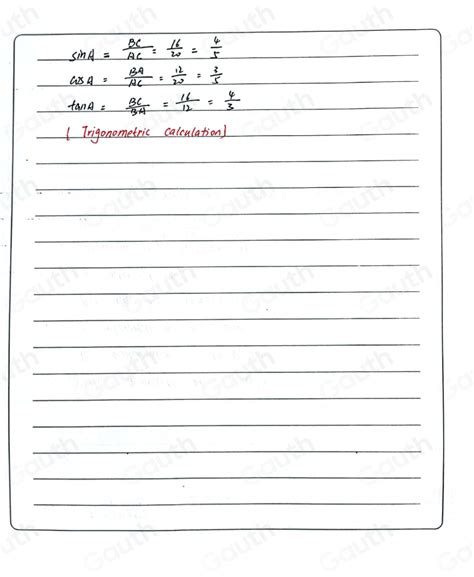 sinA = BC/AC = 16/20 = 4/5
cosA = BA/AC = 12/20 = 3/5
tanA = BC/BA = 16/12 = 4/3
( Trigonometric calculation)
Gauth